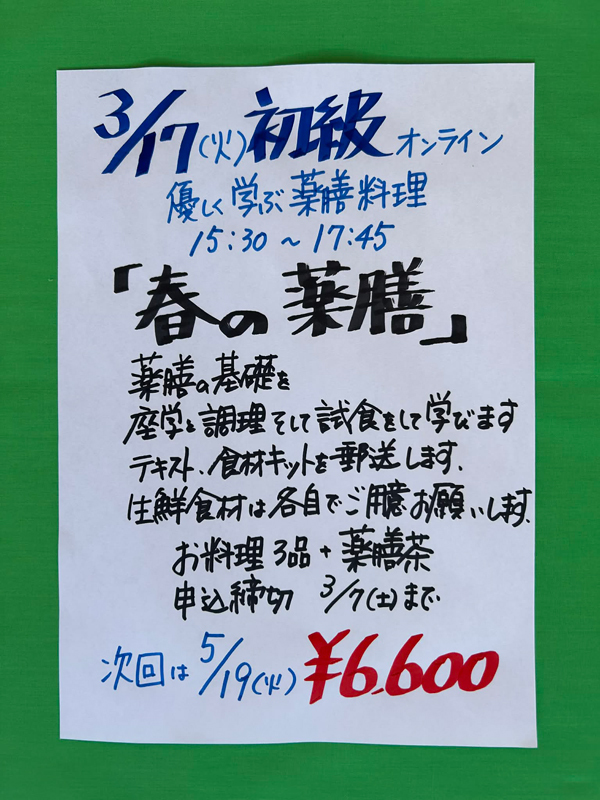 3/17(火)初級オンライン
優しく学ぶ薬膳料理
15:30～17:45
「春の薬膳」
薬膳の基礎を
座学と調理そして試食をして学びます
テキスト、食材キットを郵送します.
生鮮食材は各自でご用意お願いします.
お料理3品+薬膳茶
申込締切 3/7(土)まで
次回は5/19(火) ¥6,600